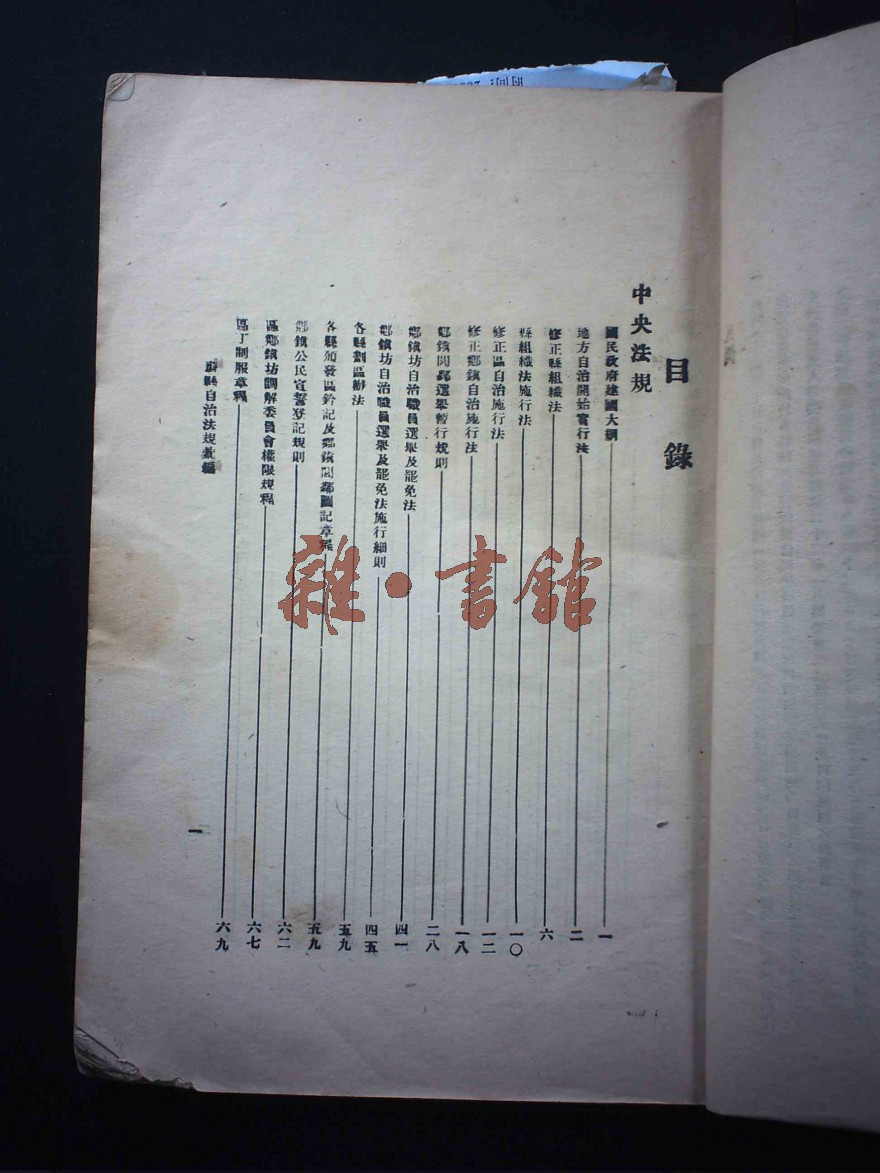 目錄
中央法規
國民政府建國大綱 一
地方自治開始實行法 二
修正縣組織法 六
縣組織法施行法 一〇
修正區自治施行法 一二
修正鄉鎮自治施行法 一八
鄉鎮閭鄰選舉暫行規則 二八
鄉鎮坊自治職員選舉及罷免法 四一
鄉鎮坊自治職員選舉及罷免法施行細則 四五
各縣劃區辦法 五九
各縣頒發區鈐記及鄉鎮閭鄰圖記章程 五九
鄉鎮公民宣誓登記規則 六二
區鄉鎮坊調解委員會權限規程 六七
區丁制服章程 六九
縣自治法規彙編
一
雜·書館